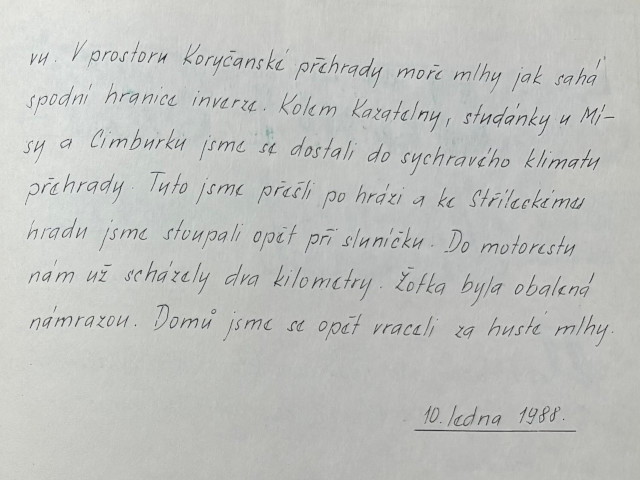 vu. V prostoru Koryčanské přehrady moře mlhy jak sahá
spodní hranice inverze. Kolem Kazatelny, studánky u Mí-
sy a Cimburku jsme se dostali do sychravého klimatu
přehrady. Tuto jsme přešli po hrázi a ke Stříleckému
hradu jsme stoupali opět při sluníčku. Do motorestu
nám už scházely dva kilometry. Žofka byla obalená
námrazou. Domů jsme se opět vraceli za husté mlhy.
10. ledna 1988.